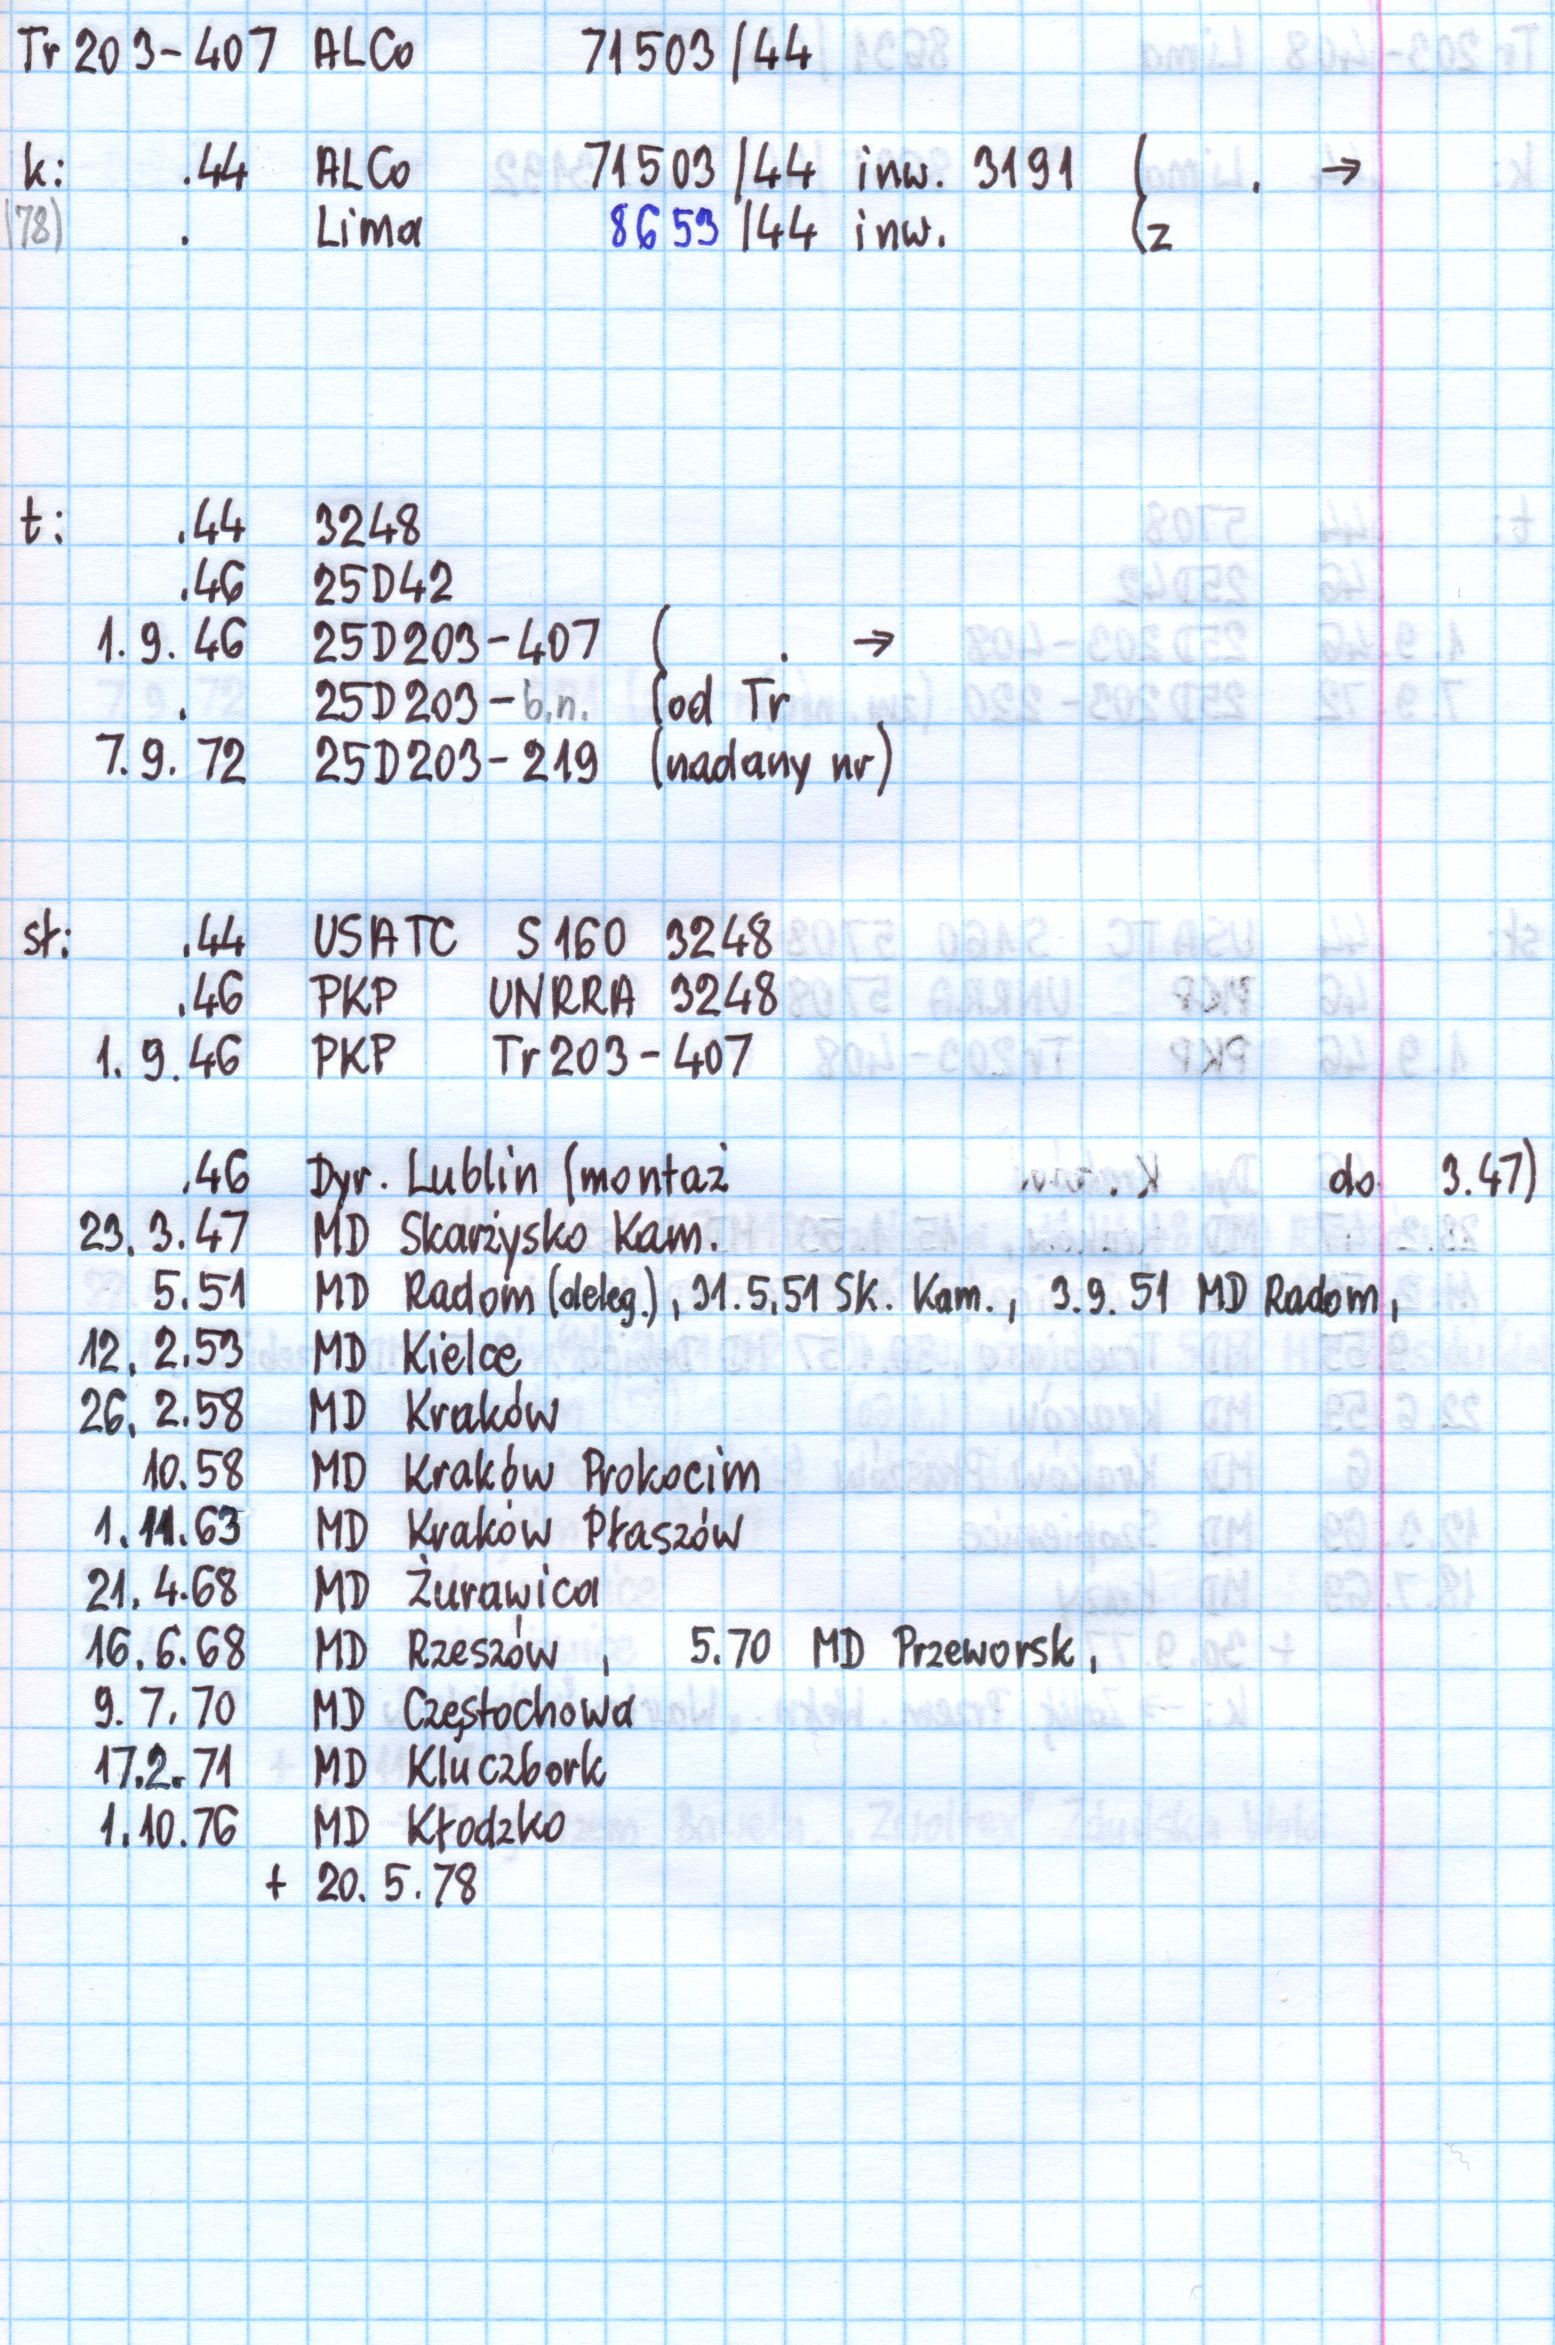 Tr 203-407 ALCo 71503/44
k: .44 ALCo 71503/44 inw. 3191 ( . →
(78) . Lima 8653/44 inw. (z
t: .44 3248
.46 25D42
1.9.46 25D203-407 ( . →
. 25D203-b.n. (od Tr
7.9.72 25D203-219 (nadany nr)
st: .44 USATC S160 3248
.46 PKP UNRRA 3248
1.9.46 PKP Tr203-407
.46 Dyr. Lublin (montaż do 3.47)
23.3.47 MD Skarżysko Kam.
5.51 MD Radom (deleg.), 31.5.51 Sk. Kam., 3.9.51 MD Radom,
12.2.53 MD Kielce
26.2.58 MD Kraków
10.58 MD Kraków Prokocim
1.11.63 MD Kraków Płaszów
21.4.68 MD Żurawica
16.6.68 MD Rzeszów, 5.70 MD Przeworsk,
9.7.70 MD Częstochowa
17.2.71 MD Kluczbork
1.10.76 MD Kłodzko
+ 20.5.78